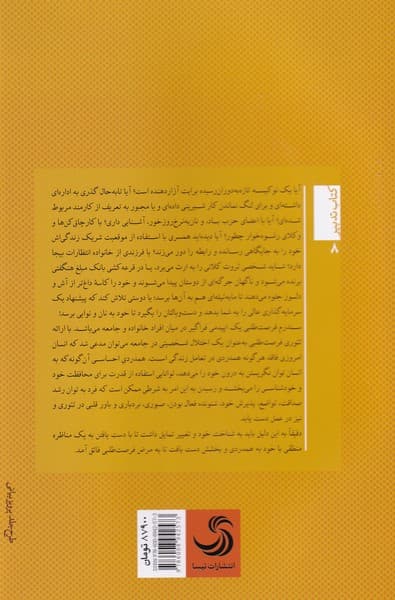 کتاب تدبیر
۸
آیا یک نوکیسه تازه‌به‌دوران‌رسیده برایت آزاردهنده است؟ آیا تابه‌حال گذری به اداره‌ای
داشته‌ای و برای لنگ نماندن کار شیرینی داده‌ای و یا مجبور به تعریف از کارمند مربوط
شده‌ای؟ آیا با اعضای حزب باد، و نان‌به‌نرخ‌روزخور، آشنایی داری؟ با کارچاق‌کن‌ها و
وکلای رشوه‌خوار چطور؟ آیا دیده‌اید همسری با استفاده از موقعیت شریک زندگی‌اش
خود را به جایگاهی رسانده و رابطه را دور می‌زند؟ یا فرزندی از خانواده انتظارات بیجا
دارد؟ شاید شخصی ثروت کلانی را به ارث می‌برد، یا در قرعه‌کشی بانک مبلغ هنگفتی
برنده می‌شود و ناگهان جرگه‌ای از دوستان پیدا می‌شوند و خود را کاسۀ داغ‌تر از آش و
دلسوز جلوه می‌دهند تا مابه‌تیله‌ای هم به آن‌ها برسد؛ یا دوستی تلاش کند که پیشنهاد یک
سرمایه‌گذاری عالی را به شما بدهد و دست‌وبالتان را بگیرد تا خود به نان و نوایی برسد؛
سندرم فرصت‌طلبی یک اپیدمی فراگیر در میان افراد خانواده و جامعه می‌باشد. با ارائه
تئوری فرصت‌طلبی به‌عنوان یک اختلال شخصیتی در جامعه می‌توان مدعی شد که انسان
امروزی فاقد هرگونه همدردی در تعامل زندگی است. همدردی احساسی آن‌گونه‌که به
انسان توان نگریستن به درون خود را می‌دهد، توانایی استفاده از قدرت برای محافظت خود
و خودشناسی را می‌بخشد و رسیدن به این امر به شرطی ممکن است که فرد به توان رشد
صداقت، تواضع، پذیرش خود، شنونده فعال بودن، صبوری، بردباری و باور قلبی در تئوری و
نیز در عمل دست یابد.
دقیقاً به این دلیل باید به شناخت خود و تغییر تمایل داشت تا با دست یافتن به یک مناظره
منطقی با خود به همدردی و بخشش دست یافت تا به مرض فرصت‌طلبی فائق آمد.
طرح جلد: پرویز بیانی
۸۷۹۰۰ تومان
انتشارات تیسا